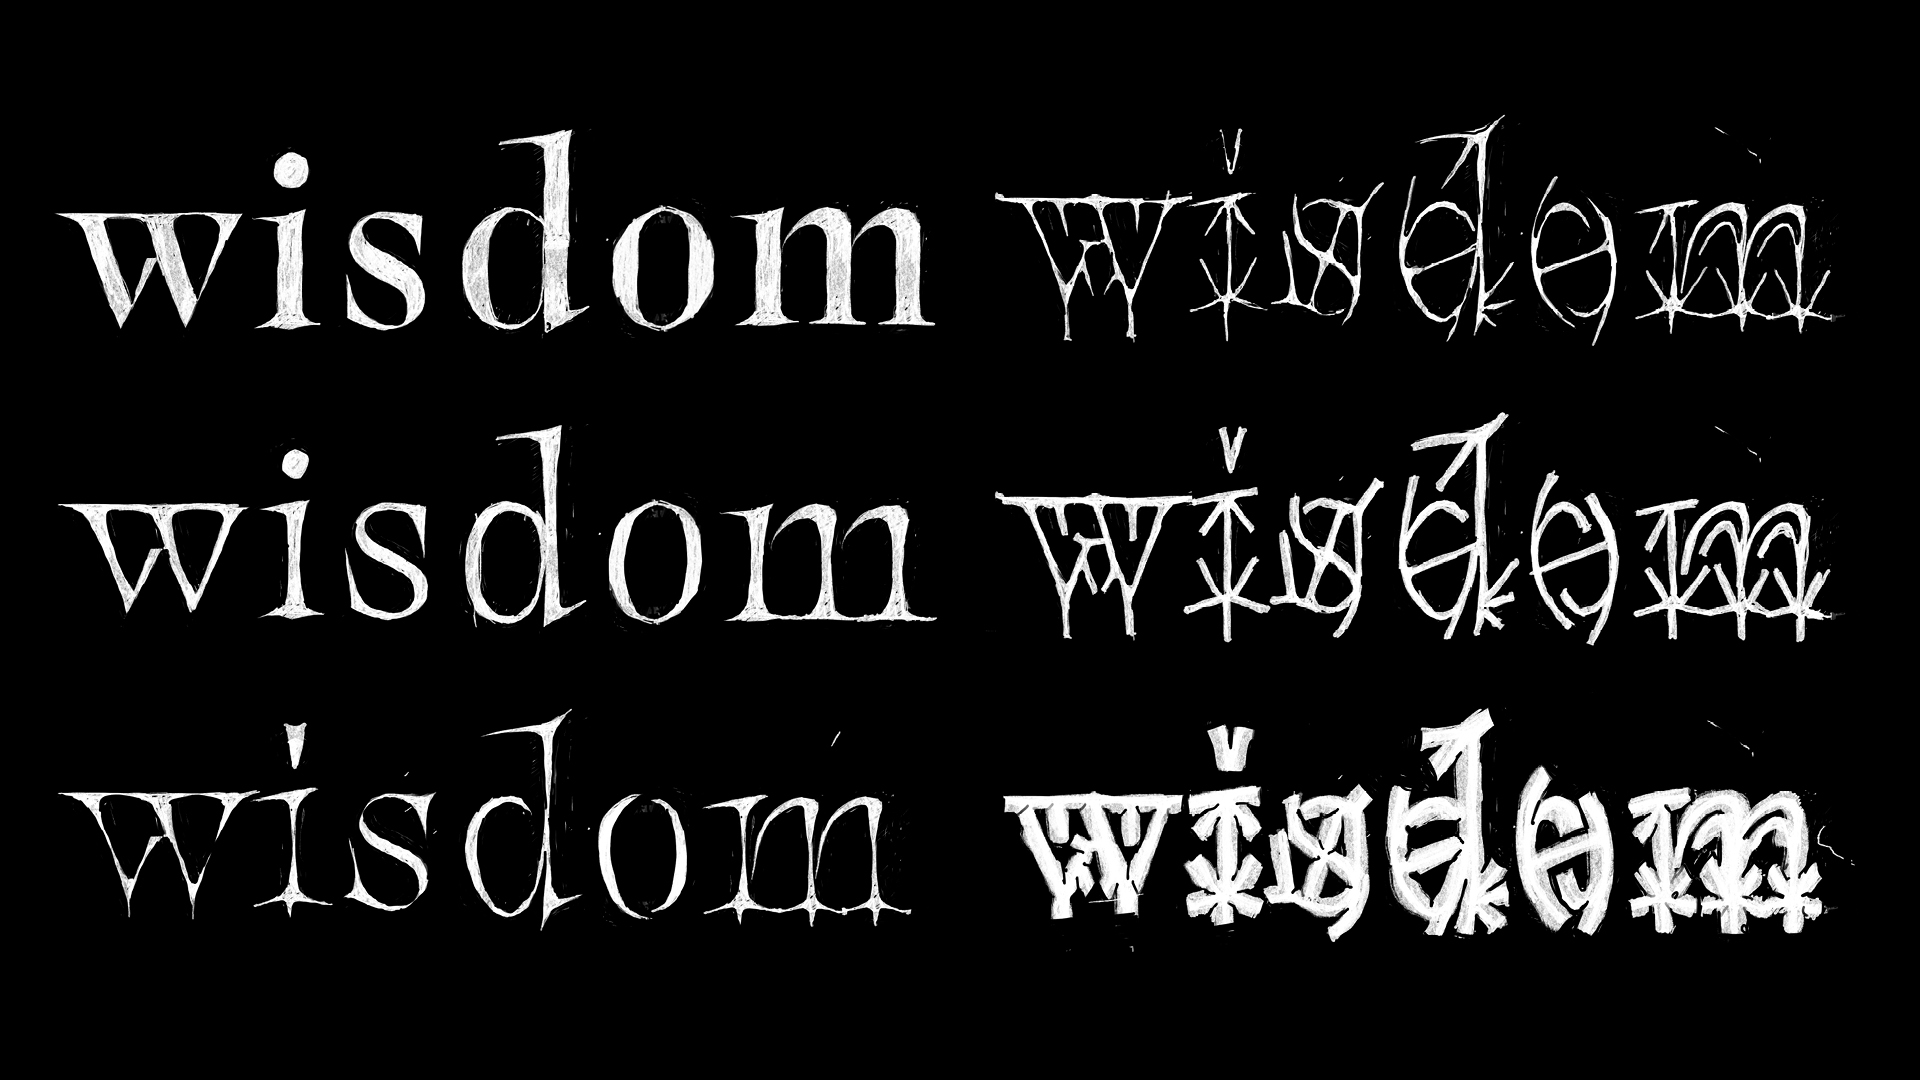 wisdom wisdom
wisdom wisdom
wisdom wisdom